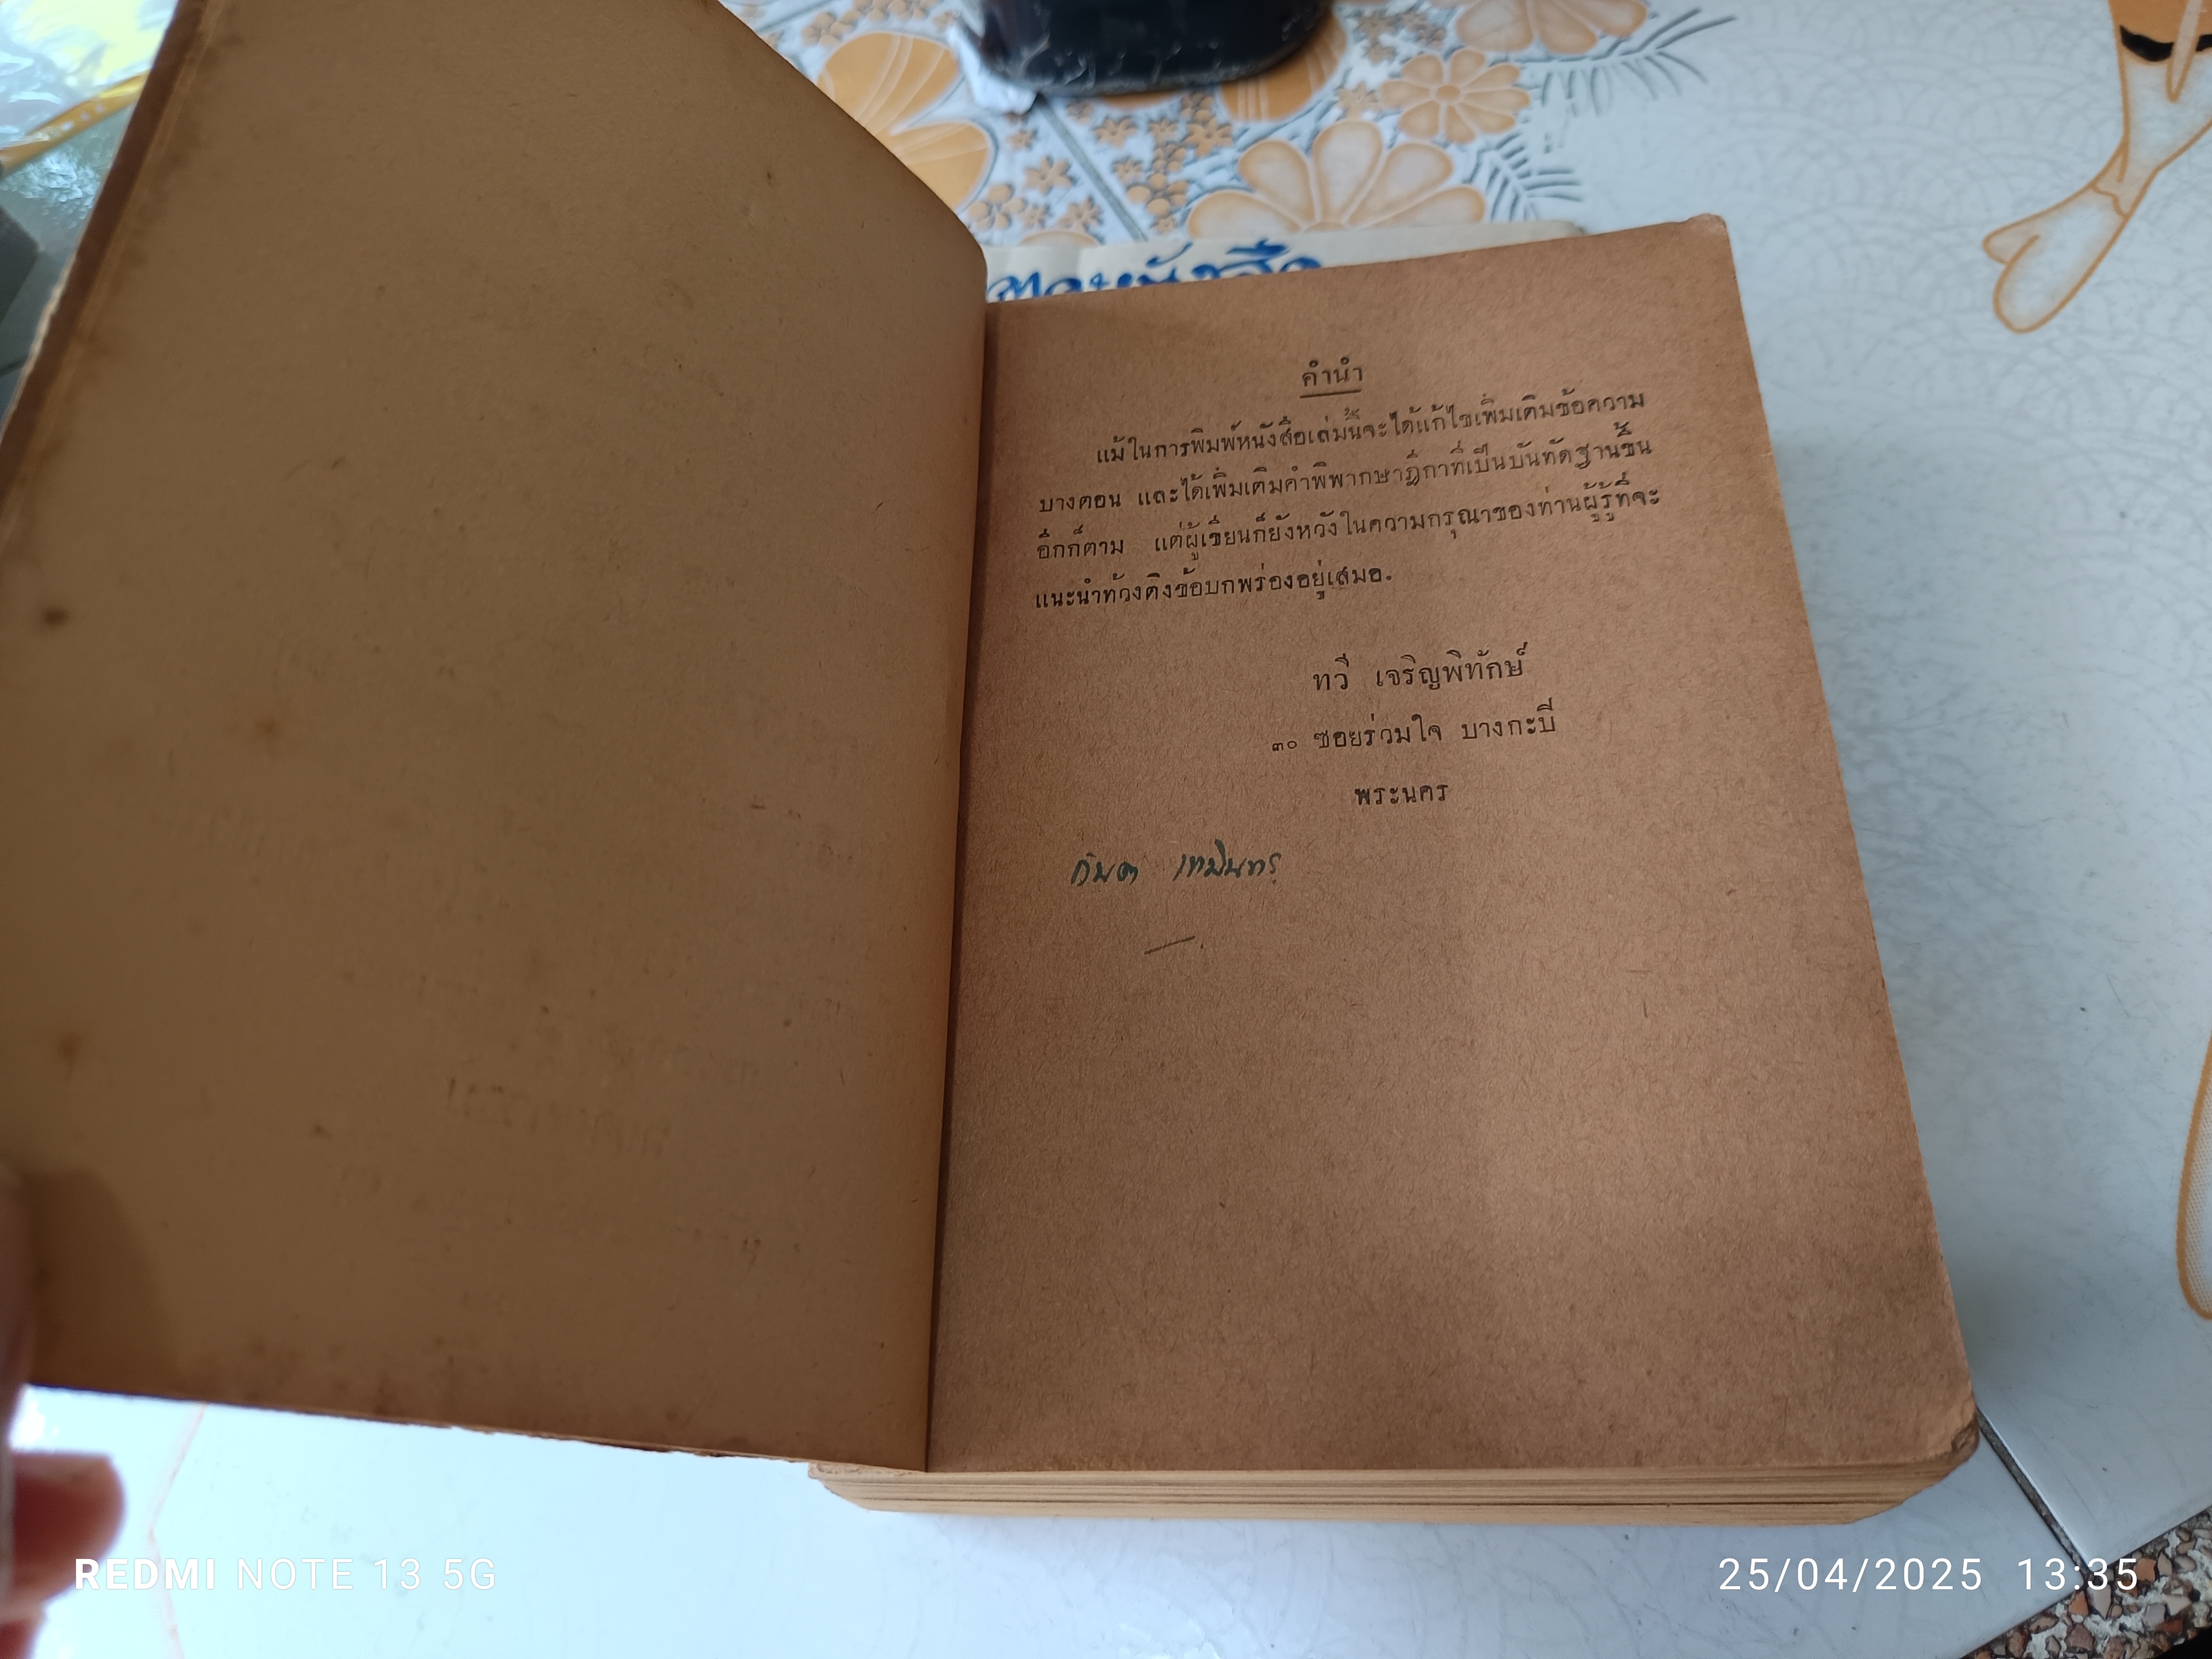 คำนำ
แม้ในการพิมพ์หนังสือเล่มนี้จะได้แก้ไขเพิ่มเติมข้อความ
บางตอน และได้เพิ่มเติมคำพิพากษาฎีกาที่เป็นบันทัดฐานขึ้น
อีกก็ตาม แต่ผู้เขียนก็ยังหวังในความกรุณาของท่านผู้รู้ที่จะ
แนะนำท้วงติงข้อบกพร่องอยู่เสมอ.
ทวี เจริญพิทักษ์
๓๐ ซอยร่วมใจ บางกะปี
พระนคร
REDMI NOTE 13 5G
25/04/2025 13:35